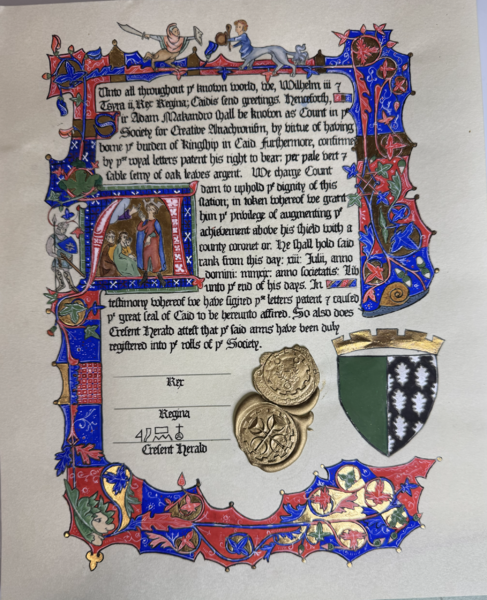 Unto all throughout yᵉ known world, we, Wilhelm iii 7
Tsyra ii, Rex Regina, Caidis send greetings. Henceforth,
Sir Adam Makandro shall be known as Count in yᵉ
Society for Creative Anachronism, by virtue of having
borne yᵉ burden of Kingship in Caid. Furthermore, confirme
by yˢᵉ royal letters patent his right to bear: per pale vert 7
sable semy of oak leaves argent. We charge Count
dam to uphold yᵉ dignity of this
station; in token whereof we grant
him yᵉ privilege of augmenting yᵉ
achievement above his shield with a
county coronet or. He shall hold said
rank from this day: xiii Julii, anno
domini: mmxix: anno societatis: liv
unto yᵉ end of his days. In
testimony whereof we have signed yˢᵉ letters patent 7 caused
yᵉ great seal of Caid to be hereunto affixed. So also does
Cresent Herald attest that yᵉ said arms have been duly
registered into yᵉ rolls of yᵉ Society.
Rex
Regina
Cresent Herald